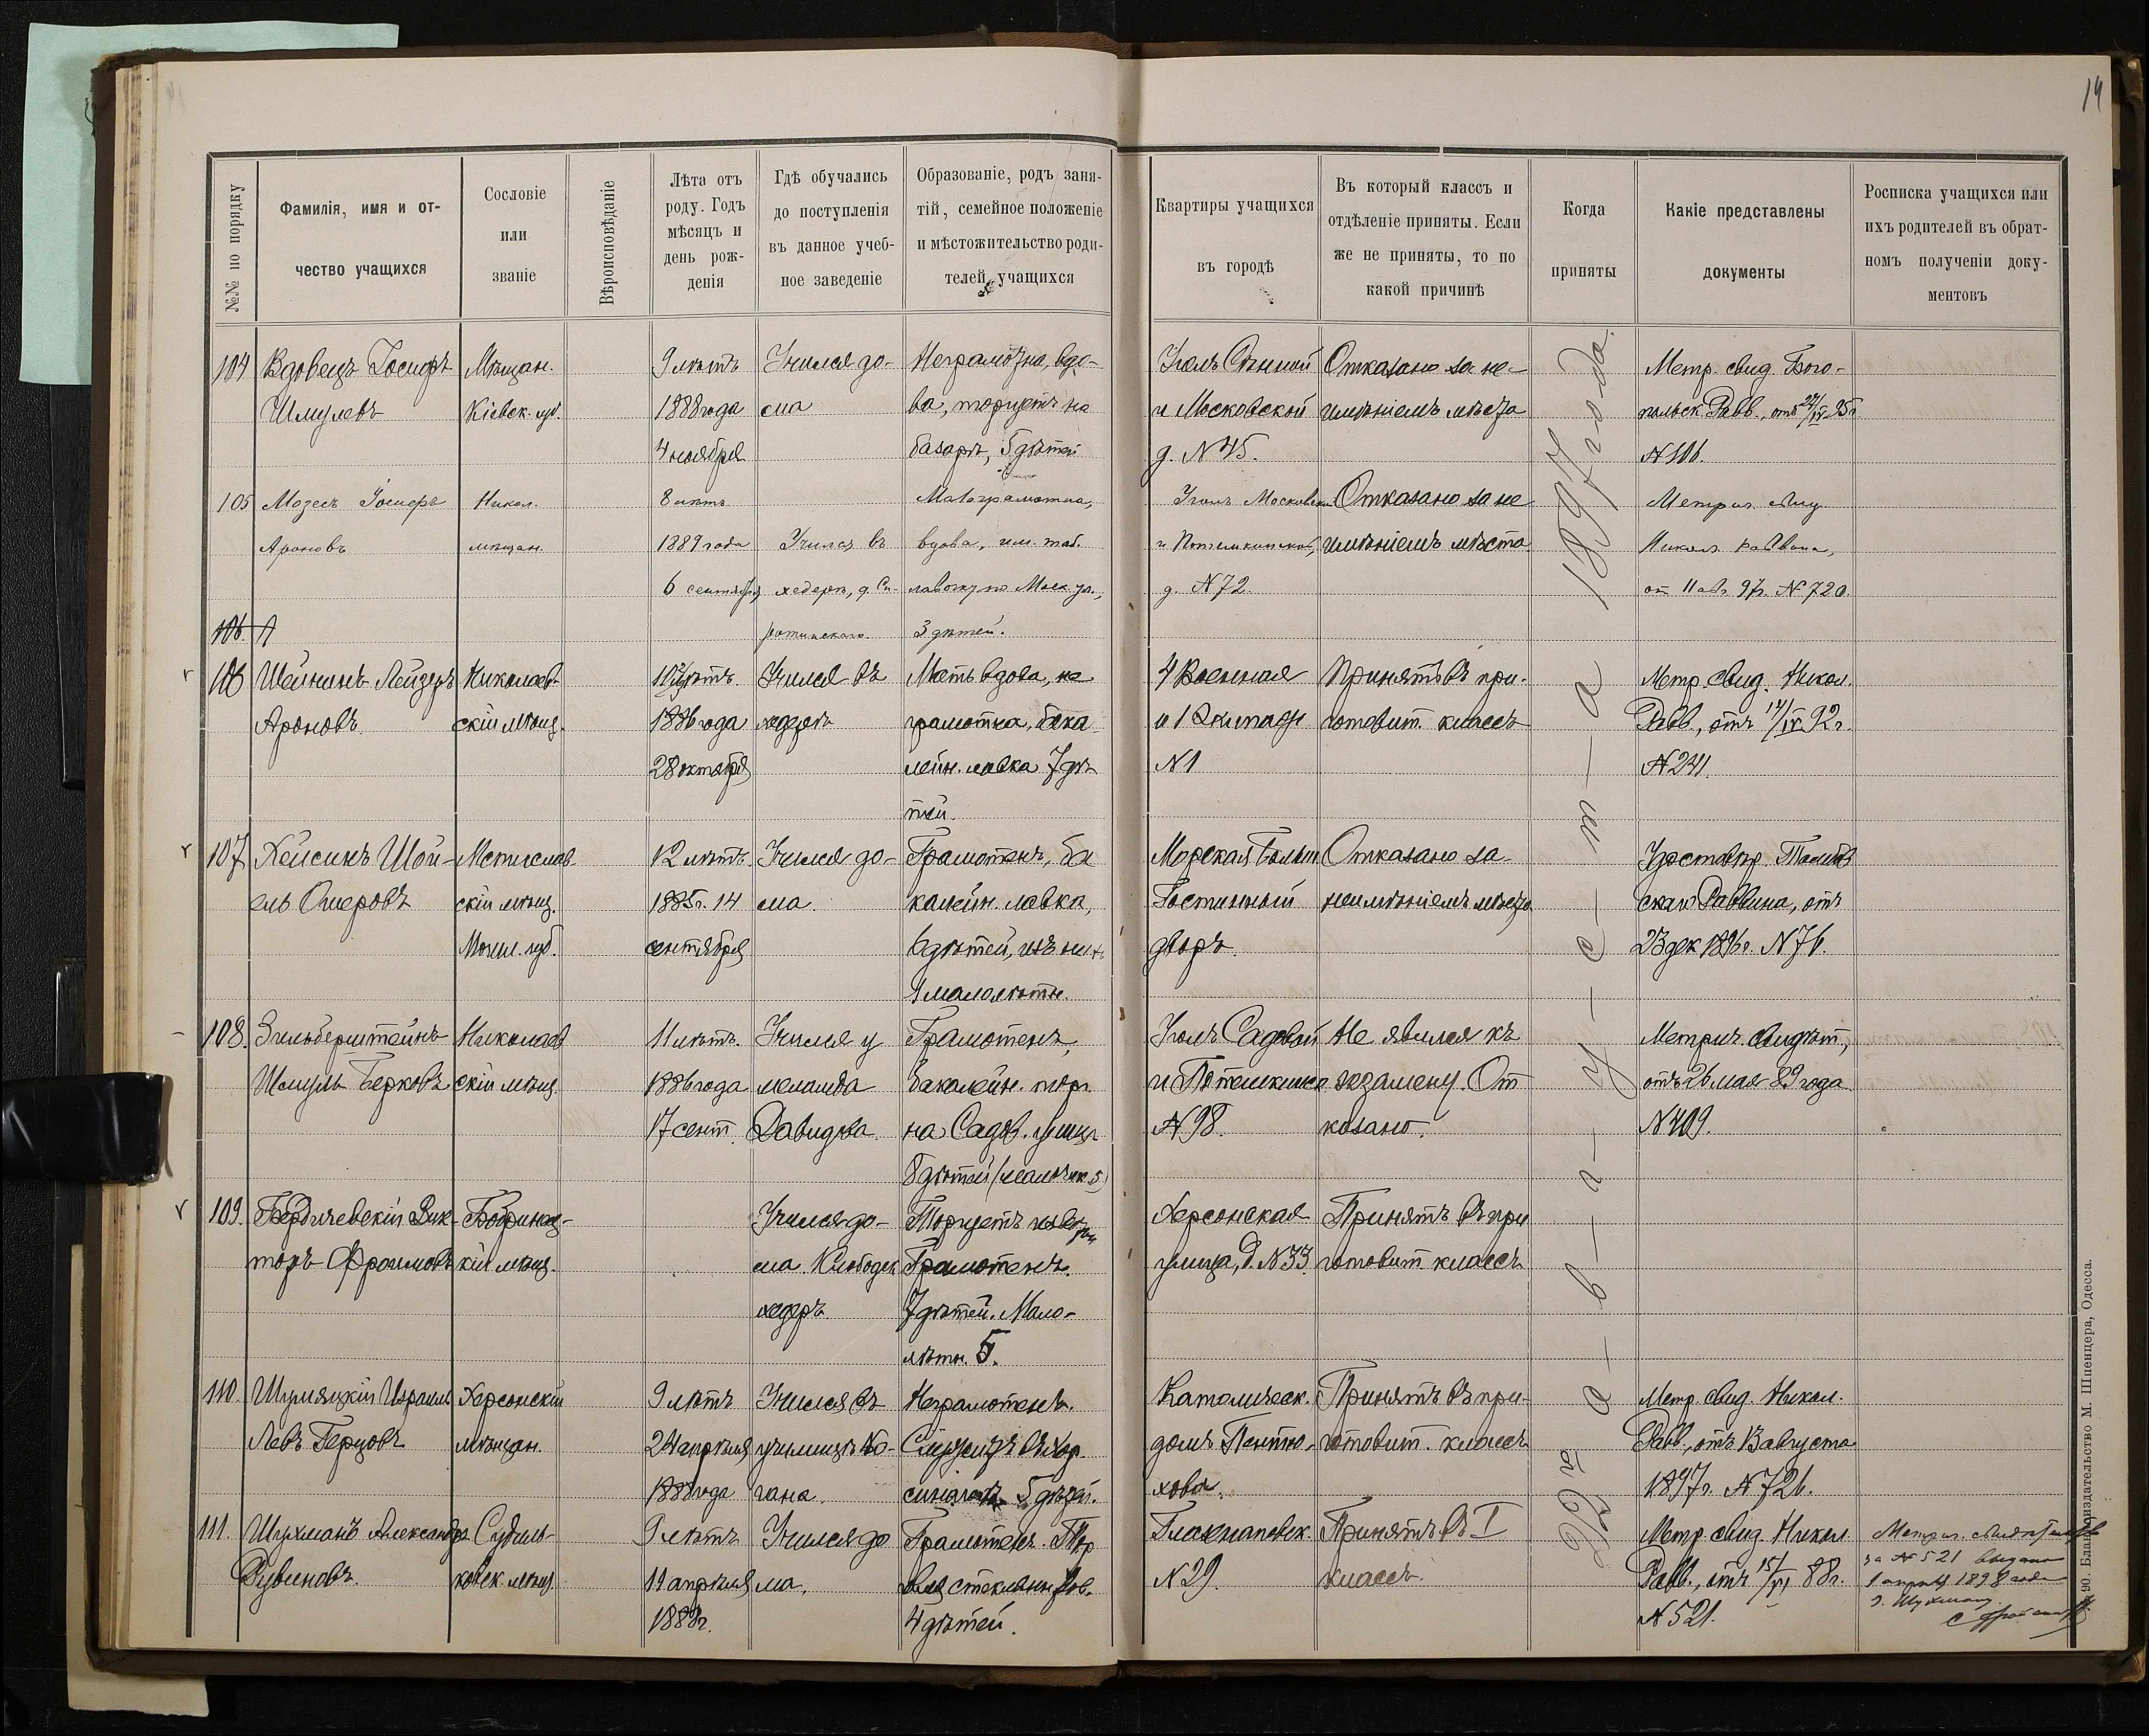 14
№№ по порядку
Фамилія, имя и от-
чество учащихся
Сословіе
или
званіе
Вѣроисповѣданіе
Лѣта отъ
роду. Годъ
мѣсяцъ и
день рож-
денія
Гдѣ обучались
до поступленія
въ данное учеб-
ное заведеніе
Образованіе, родъ заня-
тій, семейное положеніе
и мѣстожительство роди-
телей учащихся
Квартиры учащихся
въ городѣ
Въ который классъ и
отдѣленіе приняты. Если
же не приняты, то по
какой причинѣ
Когда
приняты
Какіе представлены
документы
Росписка учащихся или
ихъ родителей въ обрат-
номъ полученіи доку-
ментовъ
104
Вдовецъ Іосифъ
Шмулевъ
Мѣщан.
Кіевск. губ.
9 лѣтъ
1888 года
4 ноября
Учился до-
ма
Неграмотна, вдо-
ва, торгуетъ на
базарѣ, 5 дѣтей
Уголъ Сѣнной
и Московской
д. N 45.
Отказано за не-
имѣніемъ мѣста
Метр. свид. Бого-
польск. Равв., отъ 27/IV 95 г.
N 106.
105
Мозесъ Іосифъ
Ароновъ
Никол.
мѣщан.
8 лѣтъ
1889 года
6 сентября
Учился въ
хедерѣ, д. Си-
ротинскаго.
Малограмотна,
вдова, им. таб.
лавочку по Моск. ул.,
3 дѣтей.
Уголъ Московской
и Потемкинской,
д. N 72.
Отказано за не
имѣніемъ мѣста
Метрич. свид.
Никол. раввина,
от 11 авг. 97 г. N 720.
106.
106
Шейнинъ Лейзеръ
Ароновъ.
Николаев-
скій мѣщ.
10 лѣтъ.
1886 года
28 октября
Учился въ
хедерѣ
Мать вдова, не
грамотна, бака
лейн. лавка 7 дѣ
тей.
4 Военная
и 1 Экипажн
N 1
Принятъ въ при-
готовит. классъ
Метр. свид. Никол.
Равв., отъ 14/IX 92 г.
N 241.
107
Хейсинъ Шой-
ель Омеровъ
Мстислав
скій мѣщ.
Могил. губ.
12 лѣтъ.
1885 г. 14
сентября
Учился до-
ма.
Грамотенъ, ба
калейн. лавка,
6 дѣтей, изъ нихъ
4 малолѣтн.
Морская Больш
Гостинный
дворъ.
Отказано за-
неимѣніемъ мѣста
скаго Раввина, отъ
23 дек 1896 г. N 76.
108.
Зильберштейнъ
Шмуль Берковъ
Николаев
скій мѣщ.
11 лѣтъ.
1886 года
17 сент.
Учился у
меламда
Давидова.
Грамотенъ,
бакалейн. торг.
на Садов. улицѣ
8 дѣтей (мальчик. 5)
Уголъ Садовой
и Потемкинск.
N 98.
Не явился къ
экзамену. От
казано.
Метрич. свидѣт.,
отъ 26 мая 89 года
N 409.
109.
Бердичевскій Вик-
торъ Фроимовъ
Бобринец-
кій мѣщ.
Учился до-
ма. Слободск
хедеръ.
Торгуетъ
Грамотенъ.
7 дѣтей. Мало-
лѣтн. 5.
Херсонская
улица, д. N 33.
Принятъ въ при
готовит. классъ
110.
Шумяцкій Израиль
Левъ Герцовъ
Херсонскій
мѣщан.
9 лѣтъ
24 апрѣля
1888 года
Учился въ
училищѣ Ко-
гана.
Неграмотенъ.
Служитъ въ хор.
синагогѣ 5 дѣтей.
Католическ.
домъ Пентю-
хова.
Принятъ въ при-
готовит. классъ
Метр. свид. Никол.
Равв., отъ 13 августа
1897 г. N 726.
111.
Шухманъ Александръ
Рувиновъ.
Судиль-
ковск. мѣщ.
9 лѣтъ
11 апрѣля
1888 г.
Учился до
ма.
Грамотенъ. Тор
овля стеклянн. тов.
4 дѣтей.
N 29.
Принятъ въ I
классъ.
Метр. свид. Никол.
Равв., отъ 15/VI 88 г.
N 521.
за N 521 выдано
1 апрѣля 1898 года
г. Шухману.
а-в-г-у-с-т-а 1897 года.
90. Бланкоиздательство М. Шпенцера, Одесса.